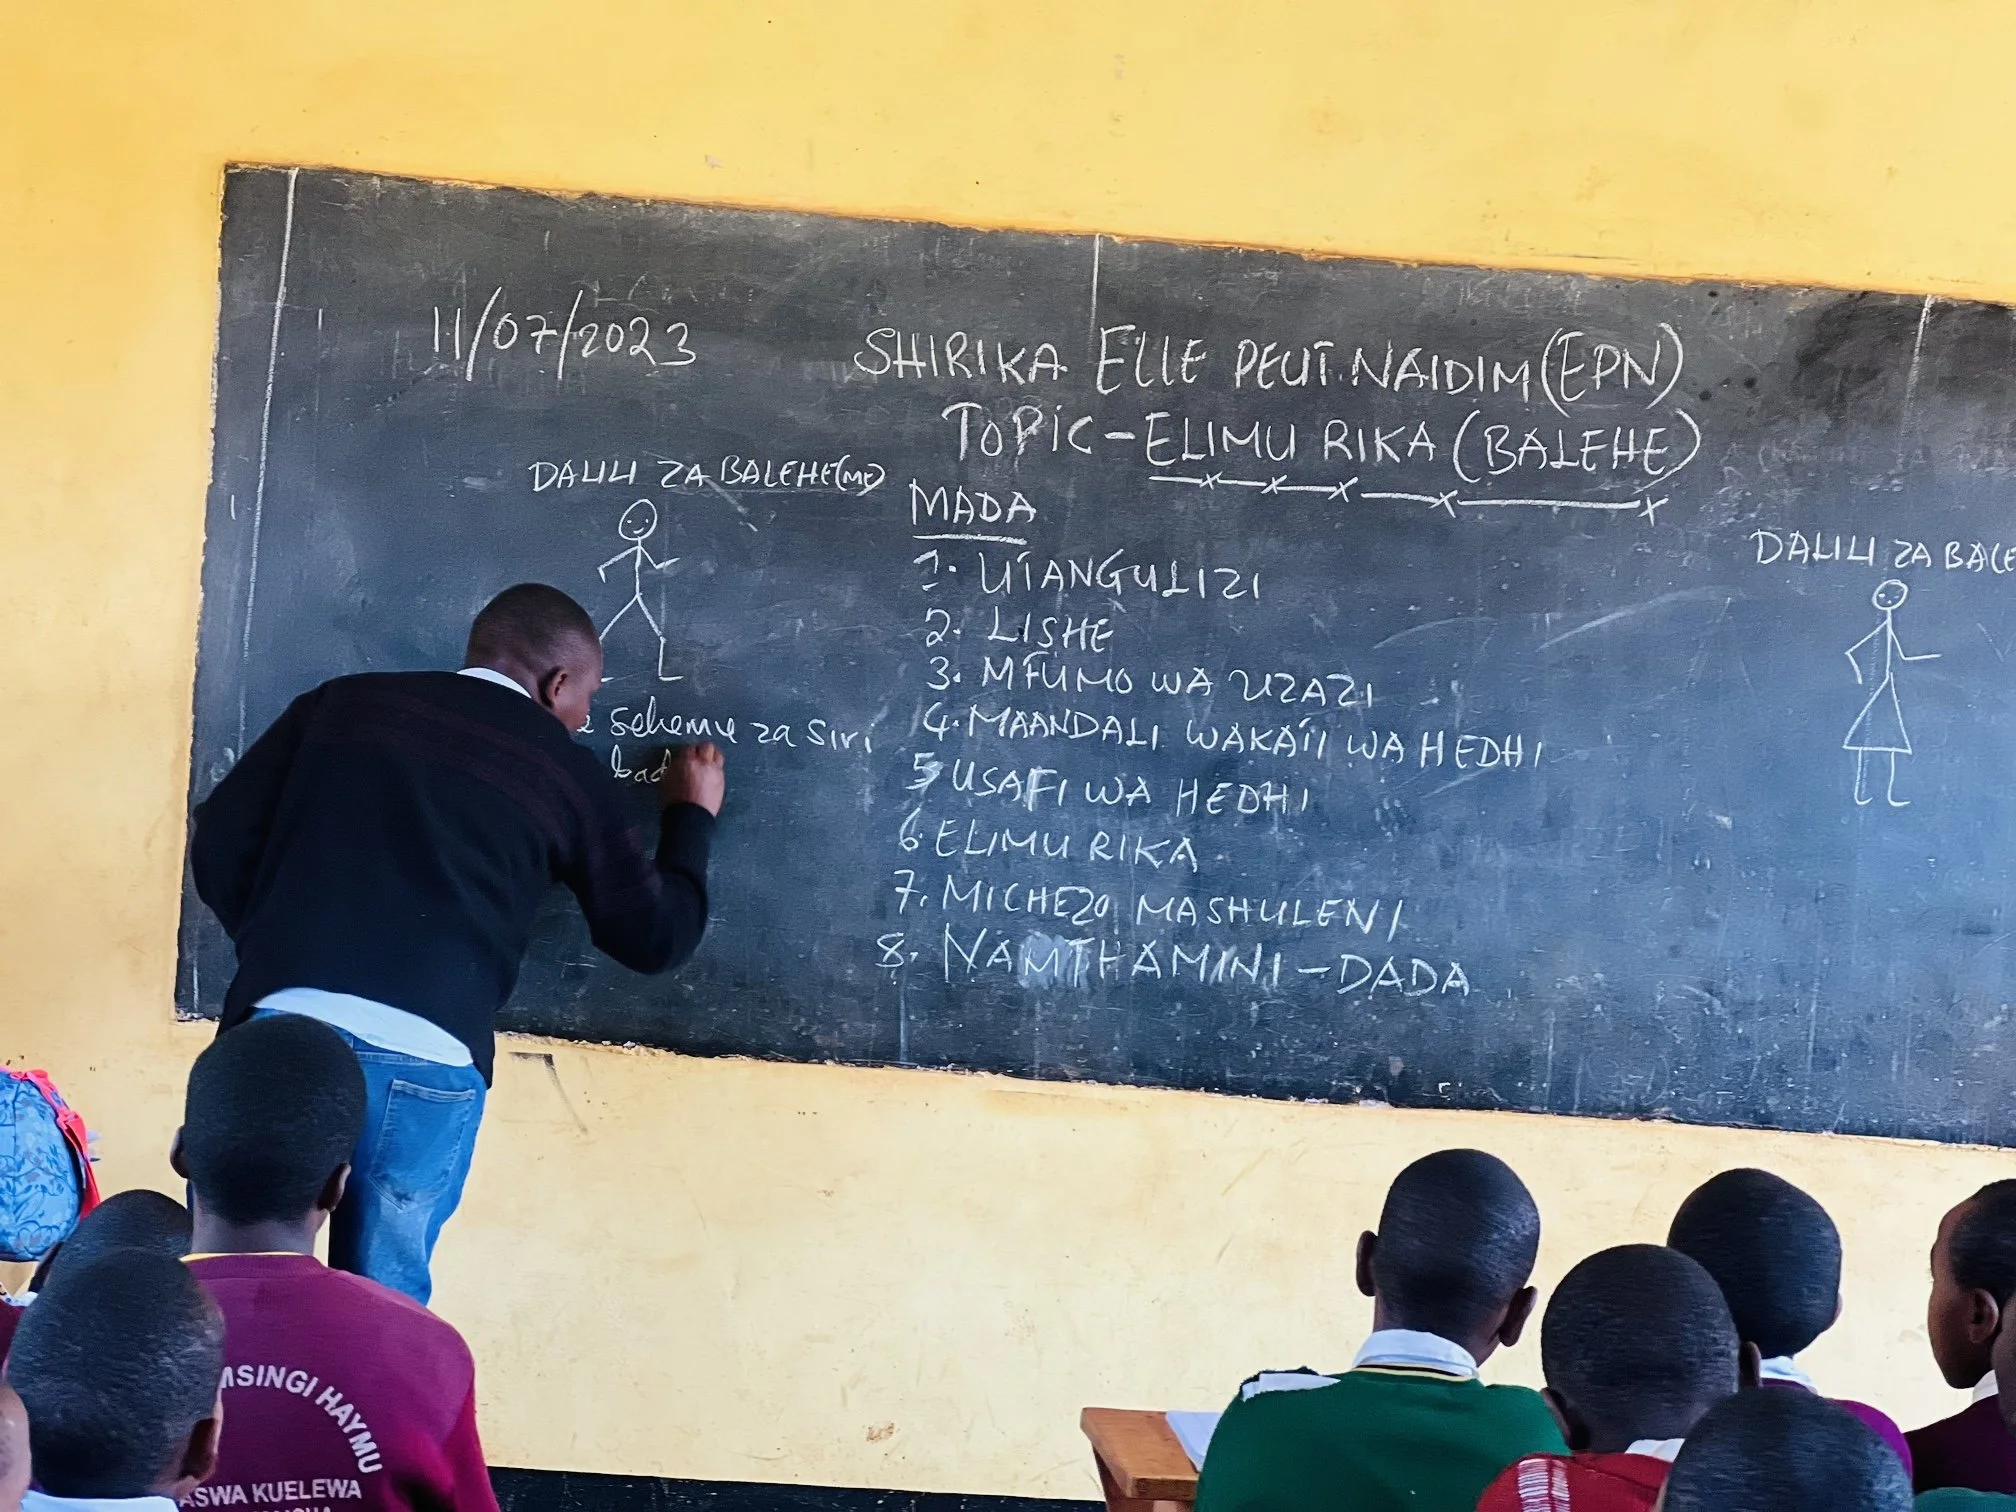 11/07/2023
SHIRIKA ELLE PEUT NAIDIM (EPN)
TOPIC - ELIMU RIKA (BALEHE)
DALILI ZA BALEHE (ME)
sehemu za siri
MADA
1. UTANGULIZI
2. LISHE
3. MFUMO WA UZAZI
4. MAANDALI WAKATI WA HEDHI
5 USAFI WA HEDHI
6. ELIMU RIKA
7. MICHEZO MASHULENI
8. NAMTHAMINI - DADA
DALILI ZA
MSINGI HAYMU
KUELEWA